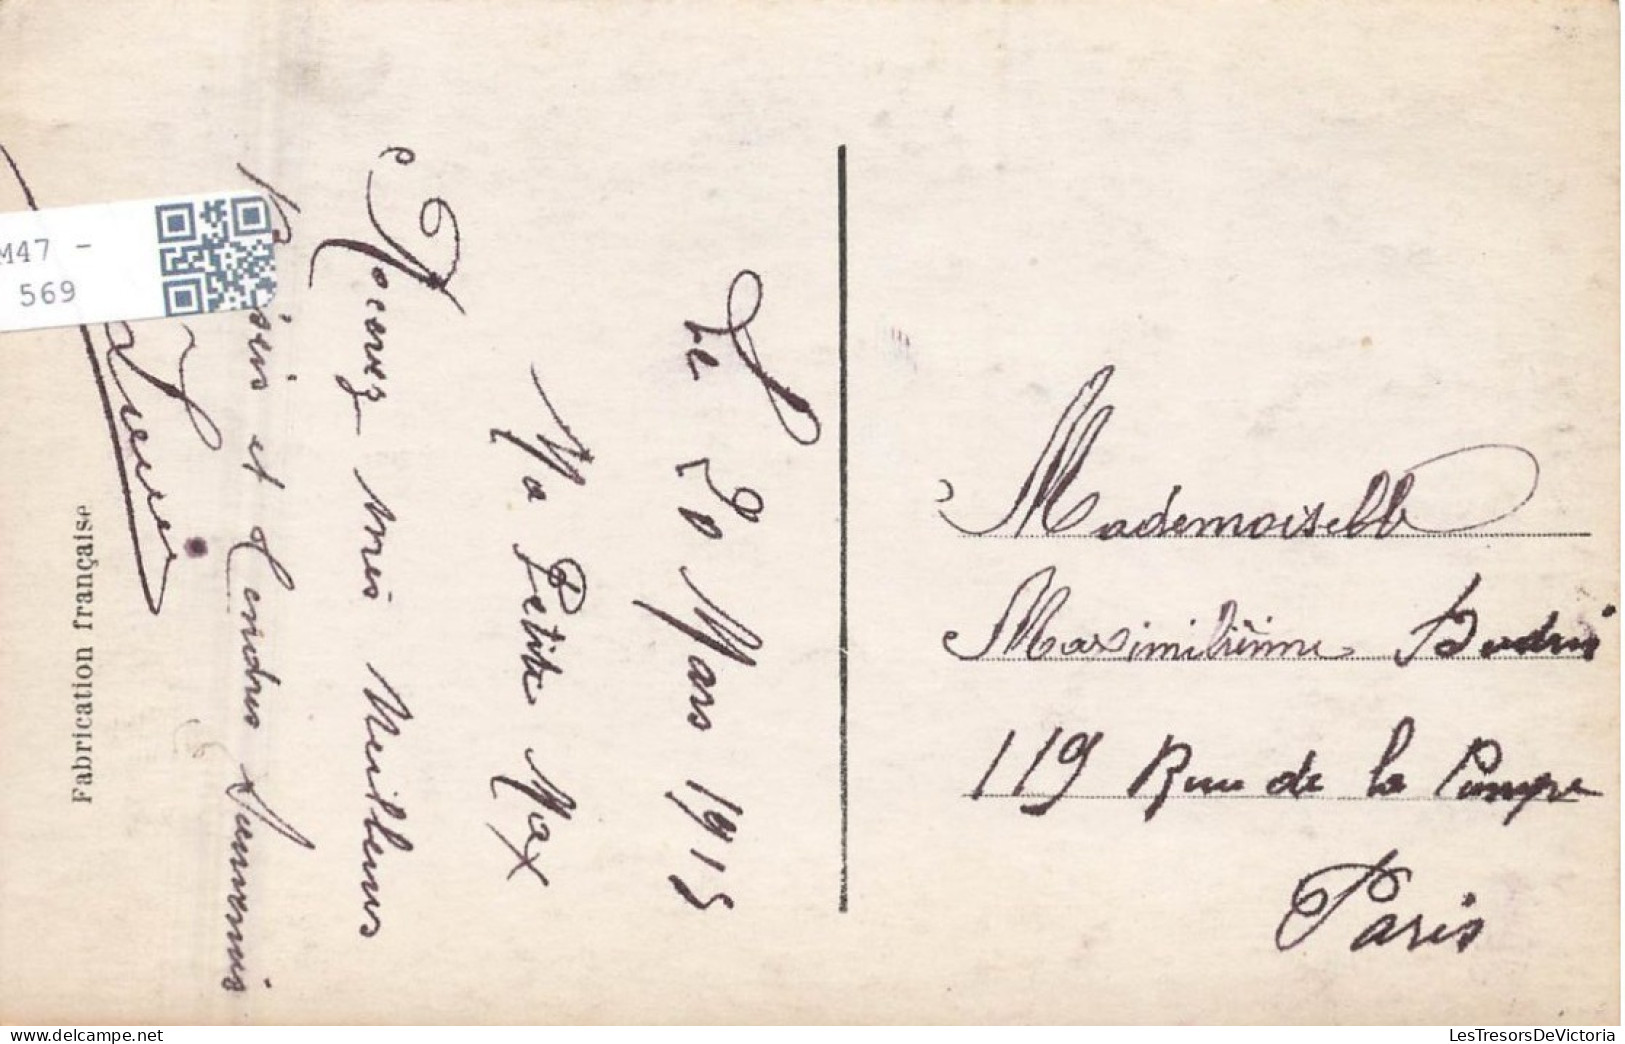 Le 20 Mars 1915
Ma Petite Max
Recevez mes Meilleurs
et tendres Souvenirs
Fabrication française
M47 -
569
Mademoiselle
Maximilienne
119 Rue de la Pompe
Paris
LesTresorsDeVictoria
delcampe.net